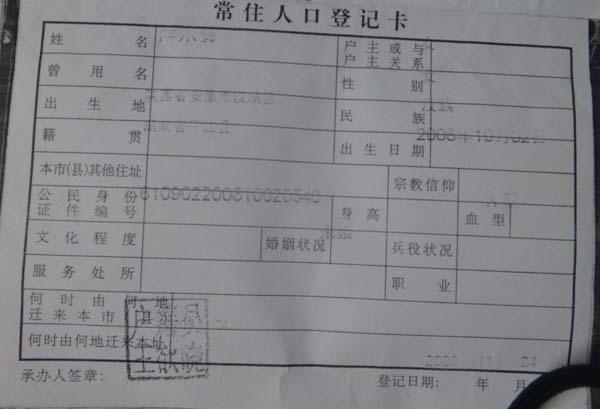 常住人口登记卡
姓名
户主或与
户主关系
曾用名
性别
出生地 陕西省安康市汉滨区
民族 汉族
籍贯
出生日期 2008年10月02日
本市(县)其他住址
宗教信仰
公民身份
证件编号 610902200810020540
身高
血型
文化程度
婚姻状况 未婚
兵役状况
服务处所
职业
何时由何地
迁来本市(县)
何时由何地迁来本址
承办人签章:
登记日期: 2008 年 11 月 24